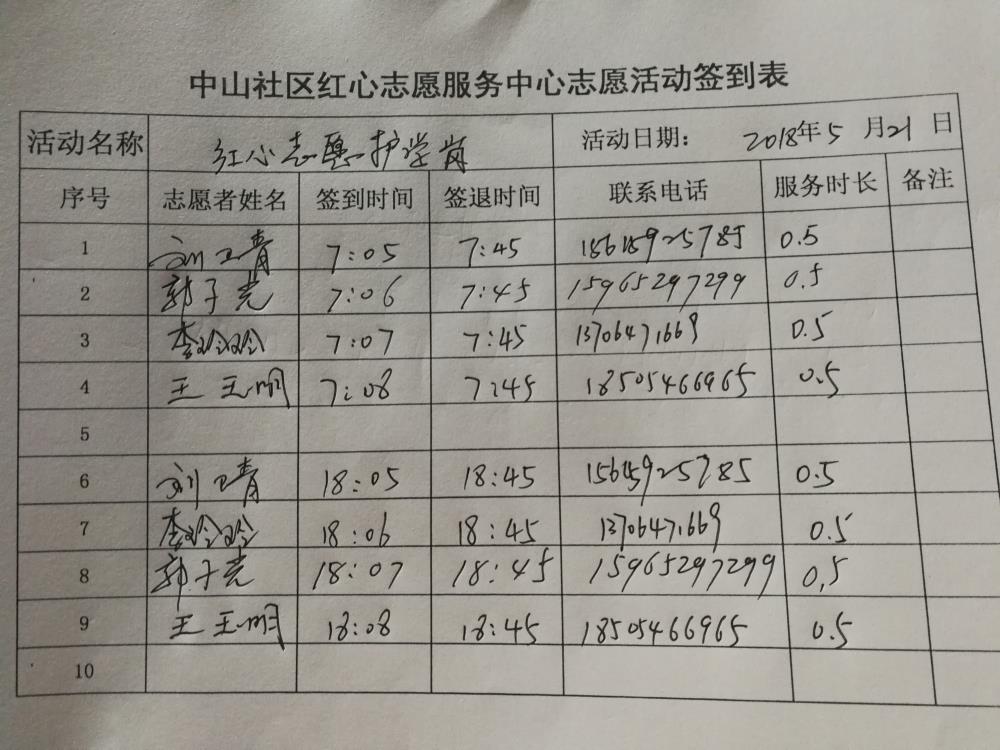 中山社区红心志愿服务中心志愿活动签到表
活动名称 红心志愿护学岗 活动日期： 2018年5月21日
序号 志愿者姓名 签到时间 签退时间 联系电话 服务时长 备注
1 刘卫青 7:05 7:45 15615925785 0.5
2 郭子党 7:06 7:45 15965297299 0.5
3 李玲玲 7:07 7:45 13706471669 0.5
4 王玉明 7:08 7:45 18505466965 0.5
5
6 刘卫青 18:05 18:45 15615925785 0.5
7 李玲玲 18:06 18:45 13706471669 0.5
8 郭子党 18:07 18:45 15965297299 0.5
9 王玉明 18:08 18:45 18505466965 0.5
10